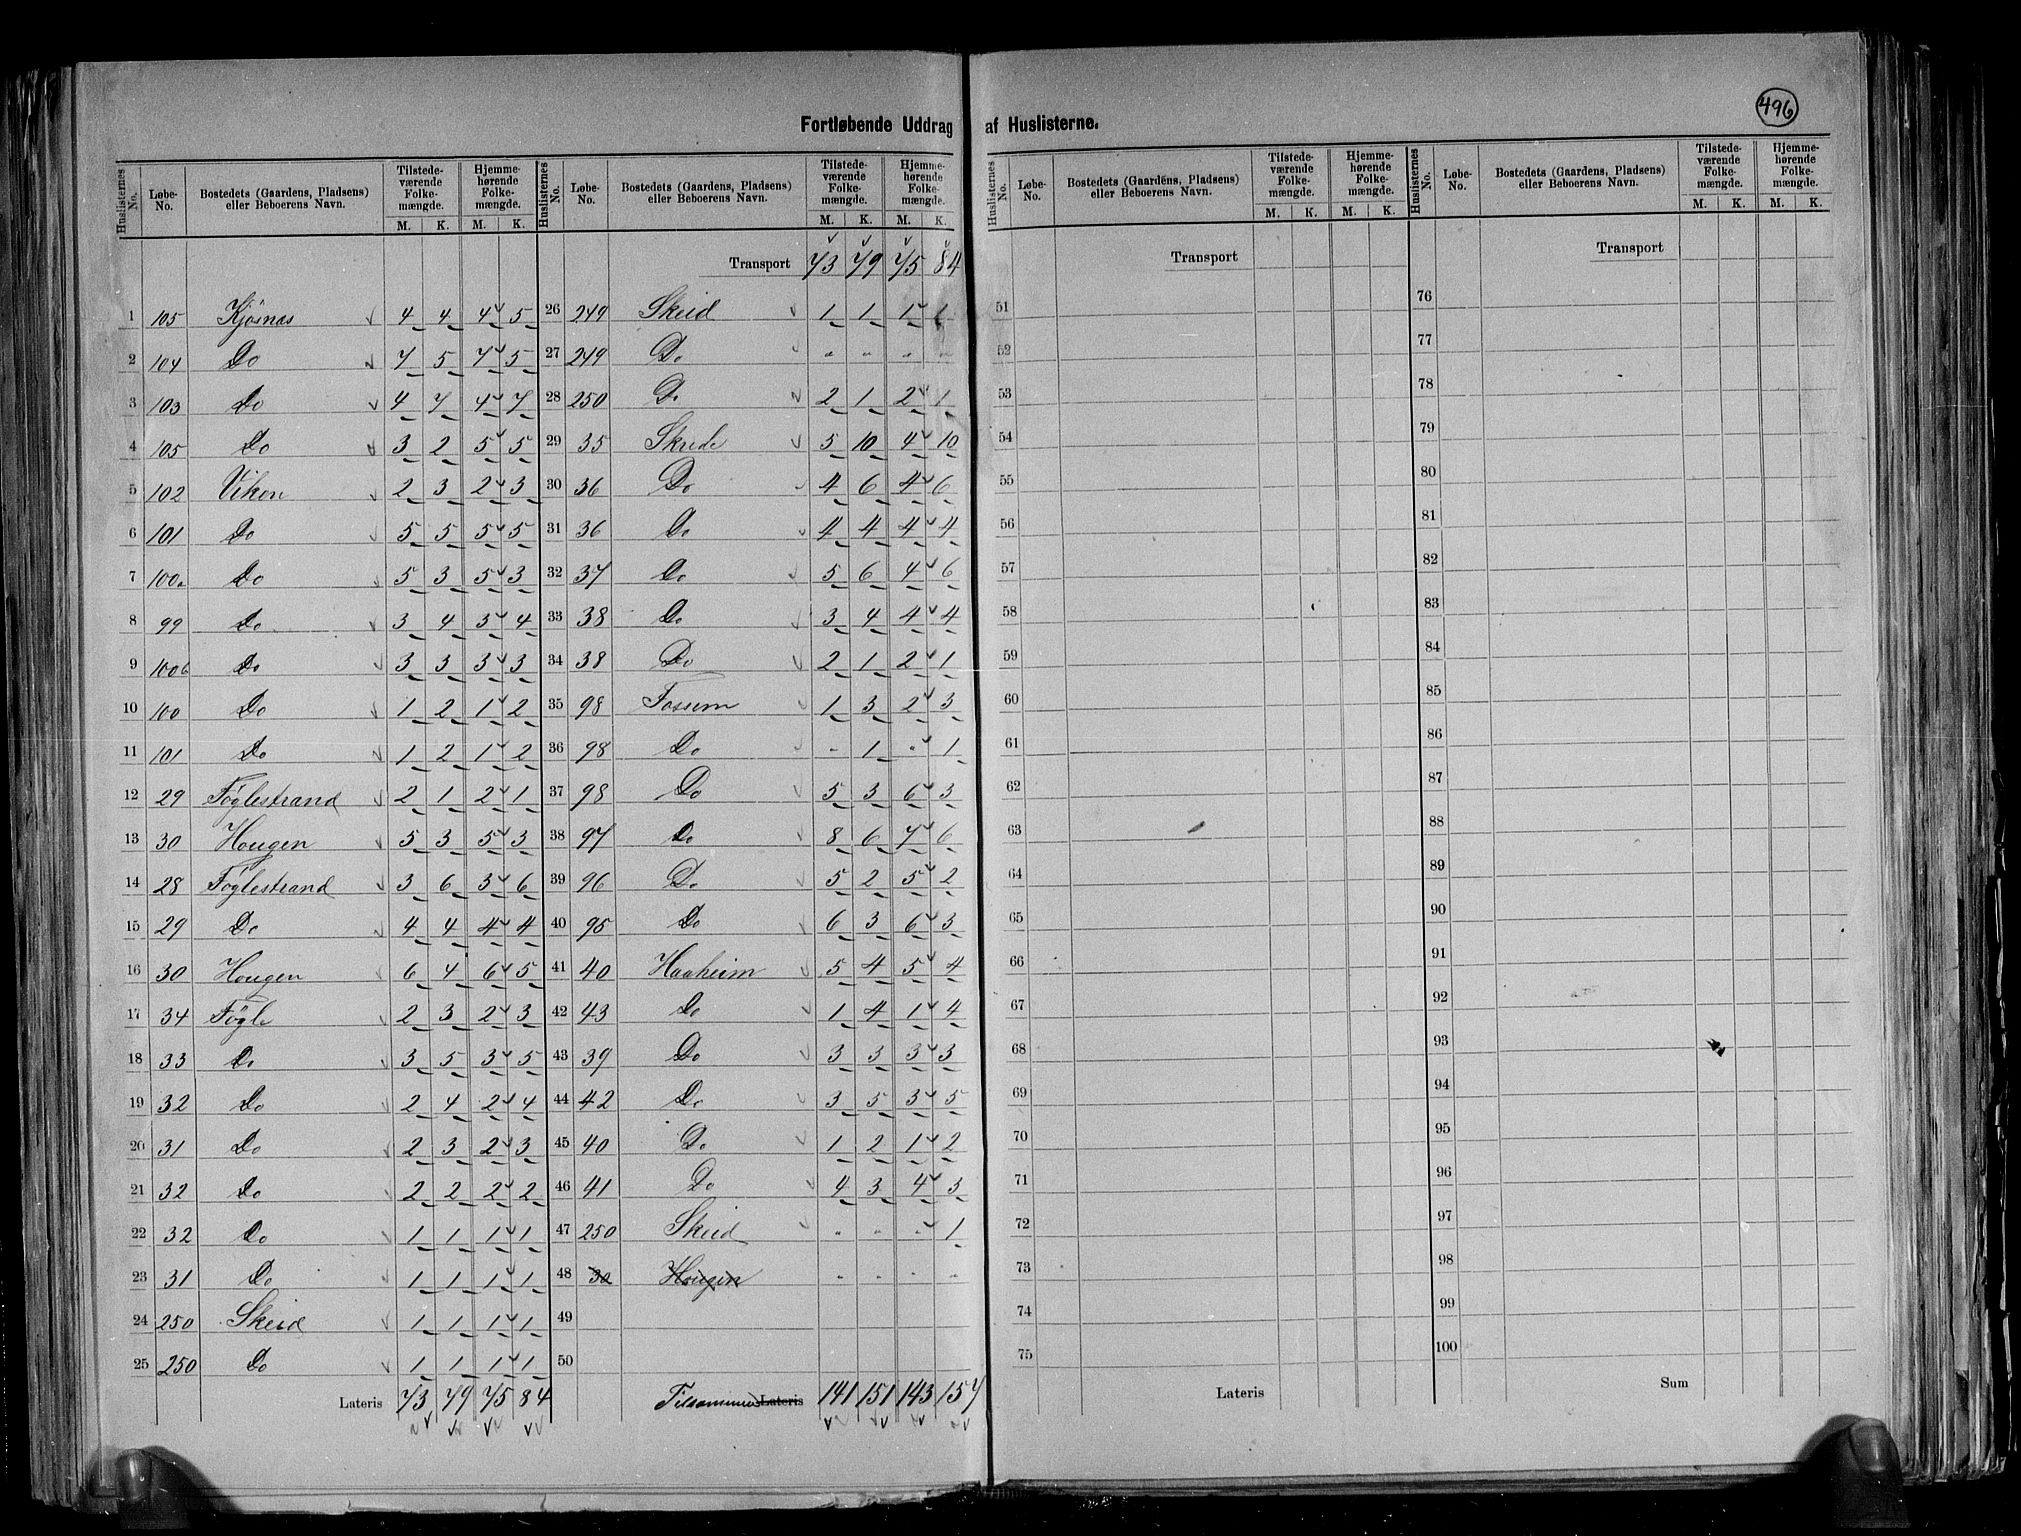 496
Fortløbende Uddrag af Huslisterne.
Huslisternes No. Løbe-No. Bostedets (Gaardens, Pladsens) eller Beboerens Navn. Tilstede-værende Folke-mængde. M. K. Hjemme-hørende Folke-mængde. M. K.
1 105 Kjösnas 4 4 4 5
2 104 Do 7 5 7 5
3 103 Do 4 7 4 7
4 105 Do 3 2 5 5
5 102 Viken 2 3 2 3
6 101 Do 5 5 5 5
7 100a Do 5 3 5 3
8 99 Do 3 4 3 4
9 100b Do 3 3 3 3
10 100 Do 1 2 1 2
11 101 Do 1 2 1 2
12 29 Föglestrand 2 1 2 1
13 30 Hougen 5 3 5 3
14 28 Föglestrand 3 6 3 6
15 29 Do 4 4 4 4
16 30 Hougen 6 4 6 5
17 34 Fögle 2 3 2 3
18 33 Do 3 5 3 5
19 32 Do 2 4 2 4
20 31 Do 2 3 2 3
21 32 Do 2 2 2 2
22 32 Do 1 1 1 1
23 31 Do 1 1 1 1
24 250 Skeid 1 1 1 1
25 250 Do 1 1 1 1
Lateris 73 79 75 84
Huslisternes No. Løbe-No. Bostedets (Gaardens, Pladsens) eller Beboerens Navn. Tilstede-værende Folke-mængde. M. K. Hjemme-hørende Folke-mængde. M. K.
Transport 73 79 75 84
26 249 Skeid 1 1 1 1
27 249 Do " " " "
28 250 Do 2 1 2 1
29 35 Skrede 5 10 4 10
30 36 Do 4 6 4 6
31 36 Do 4 4 4 4
32 37 Do 5 6 4 6
33 38 Do 3 4 4 4
34 38 Do 2 1 2 1
35 98 Fossum 1 3 2 3
36 98 Do " 1 " 1
37 98 Do 5 3 6 3
38 97 Do 8 6 7 6
39 96 Do 5 2 5 2
40 95 Do 6 3 6 3
41 40 Haaheim 5 4 5 4
42 43 Do 1 4 1 4
43 39 Do 3 3 3 3
44 42 Do 3 5 3 5
45 40 Do 1 2 1 2
46 41 Do 4 3 4 3
47 250 Skeid " " " 1
48 30 Hougen " " " "
49
50
Tilsammen Lateris 141 151 143 157
Huslisternes No. Løbe-No. Bostedets (Gaardens, Pladsens) eller Beboerens Navn. Tilstede-værende Folke-mængde. M. K. Hjemme-hørende Folke-mængde. M. K.
Transport
51
52
53
54
55
56
57
58
59
60
61
62
63
64
65
66
67
68
69
70
71
72
73
74
75
Lateris
Huslisternes No. Løbe-No. Bostedets (Gaardens, Pladsens) eller Beboerens Navn. Tilstede-værende Folke-mængde. M. K. Hjemme-hørende Folke-mængde. M. K.
Transport
76
77
78
79
80
81
82
83
84
85
86
87
88
89
90
91
92
93
94
95
96
97
98
99
100
Sum